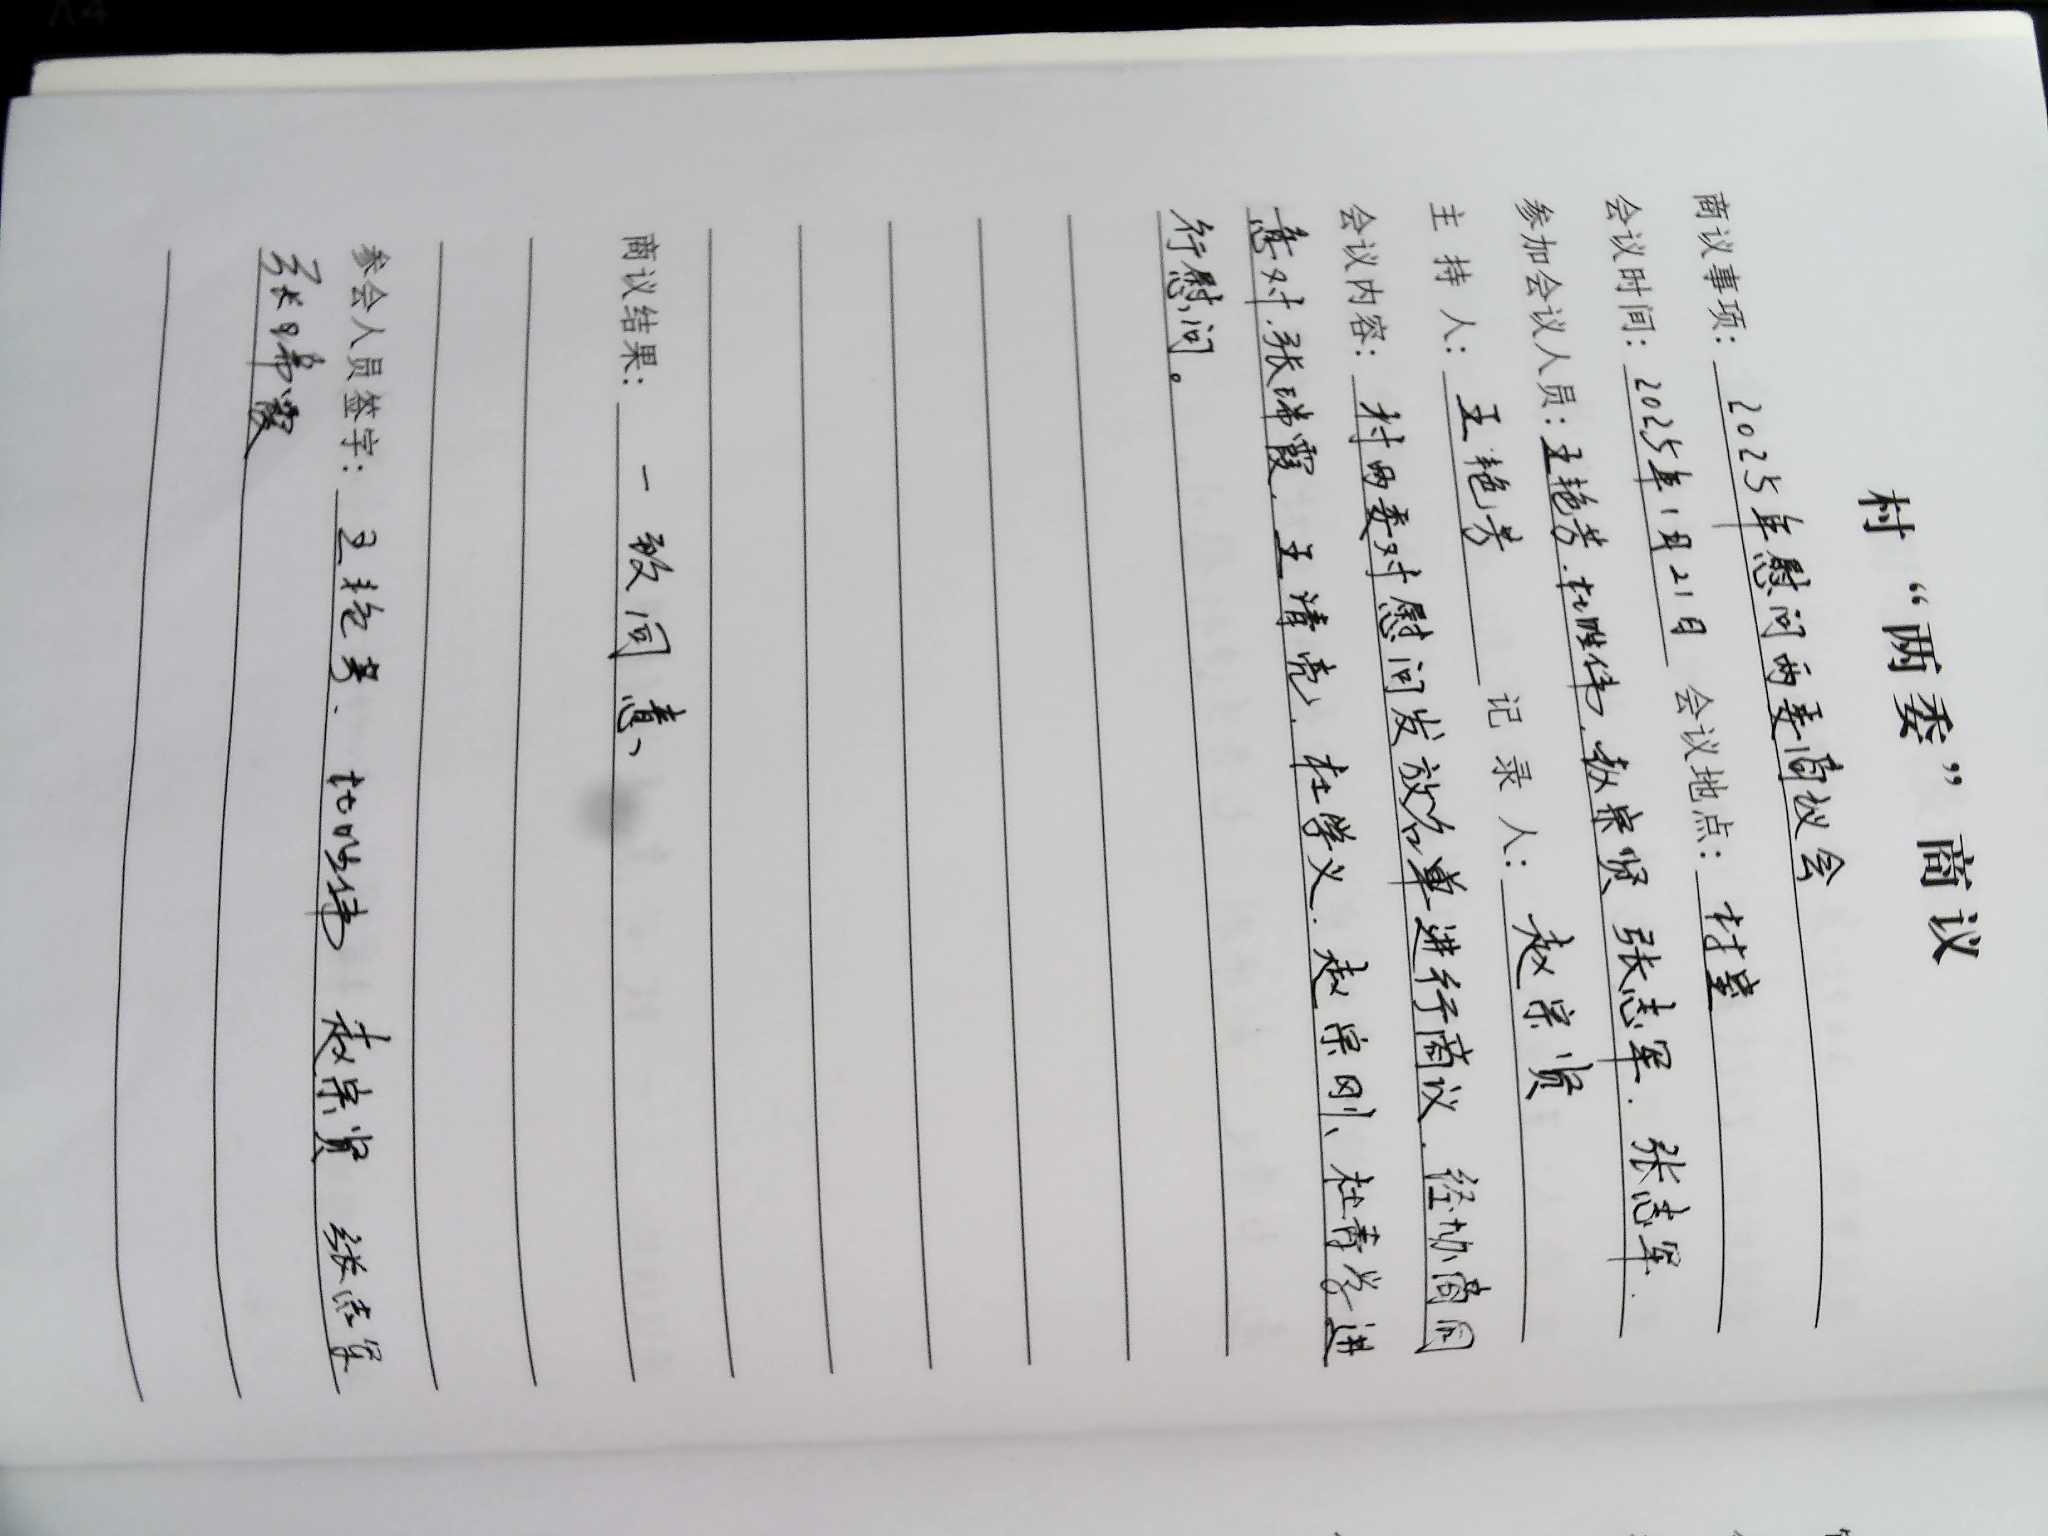 村“两委”商议
商议事项：2025年慰问两委商议会
会议时间：2025年1月21日 会议地点：村室
参加会议人员：王艳芳.杜胜伟.赵宗贤 张志军.张志军.
主持人：王艳芳 记录人：赵宗贤
会议内容：村两委对慰问发放名单进行商议.经协商同
意对.张瑞霞.王清亮.杜学义.赵宗刚、杜青学进
行慰问。
商议结果：一致同意、
参会人员签字：王艳芳. 杜胜伟 赵宗贤 张志军
张瑞霞